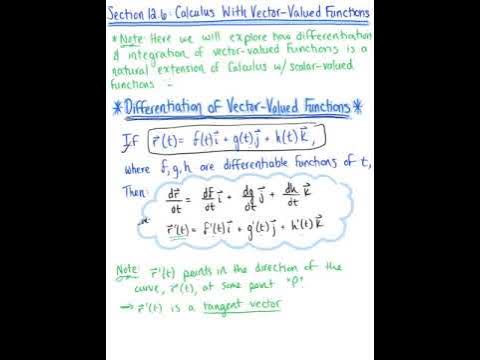 Section 12.6: Calculus With Vector-Valued Functions
*Note: Here we will explore how differentiation
& integration of vector-valued functions is a
natural extension of Calculus w/ scalar-valued
functions
*Differentiation of Vector-Valued Functions*
If r⃗(t) = f(t)i⃗ + g(t)j⃗ + h(t)k⃗,
where f, g, h are differentiable functions of t,
Then: dr⃗/dt = df/dt i⃗ + dg/dt j⃗ + dh/dt k⃗
r⃗'(t) = f'(t)i⃗ + g'(t)j⃗ + h'(t)k⃗
Note: r⃗'(t) points in the direction of the
curve, r⃗(t), at some point "P"
→ r⃗'(t) is a tangent vector